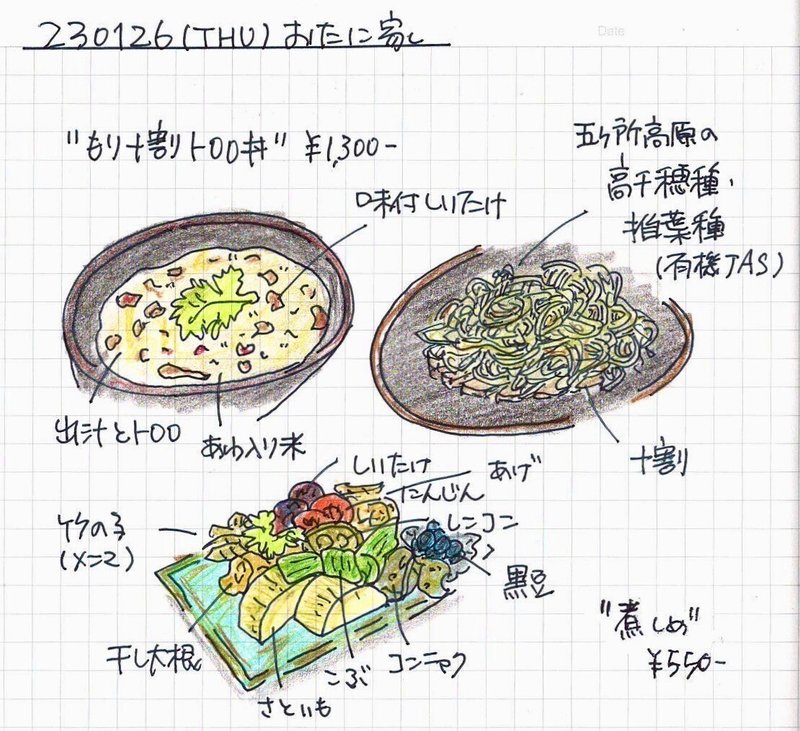 230126(THU) おたに家し
Date
"もり十割トロロ丼" ¥1,300-
味付しいたけ
五ケ所高原の
高千穂種・
椎葉種
(有機JAS)
出汁とトロロ
あわ入り米
十割
しいたけ
あげ
にんじん
レンコン
黒豆
竹の子
(メニ2)
干し大根
さといも
こぶ
コンニャク
"煮しめ"
¥550-